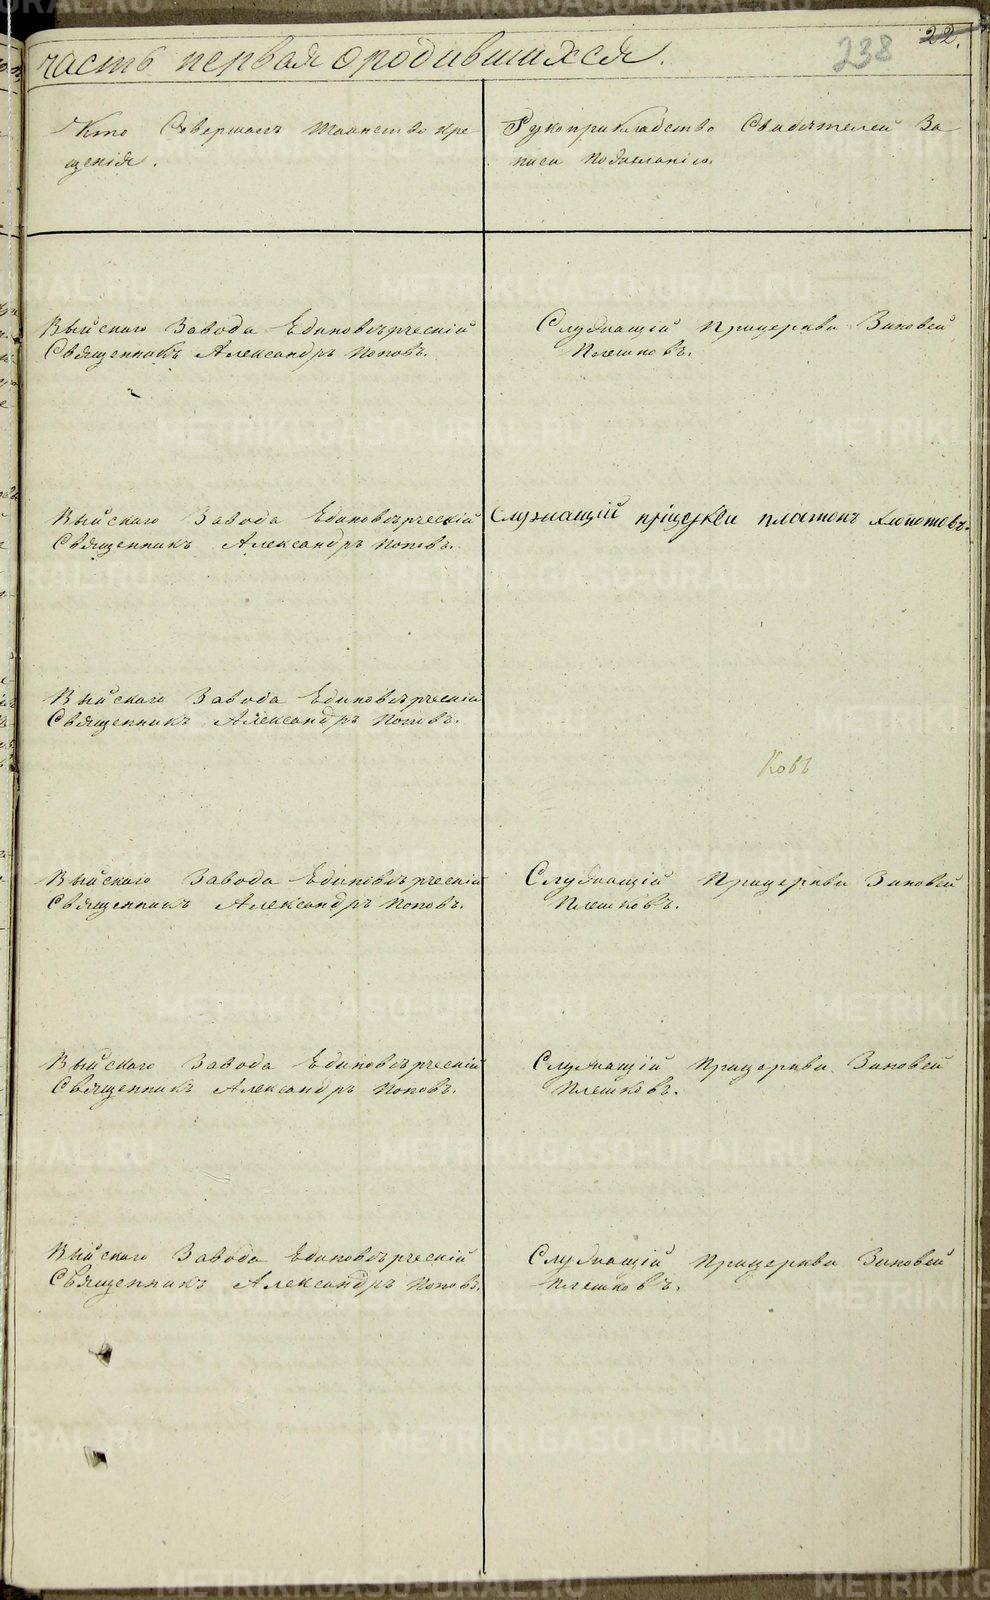 часть первая о родившихся.
238
22.
Кто Совершалъ таинство кре
щенія.
Рукоприкладство Свидѣтелей За
писи по желанію.
Выйскаго Завода Единовѣрческій
Священникъ Александръ Поповъ.
Служащій Прицеркви Зиновей
Плешковъ.
Выйскаго Завода Единовѣрческій
Священникъ Александръ Поповъ.
Служащій пріцеркви платонъ
Выйскаго Завода Единовѣрческій
Священникъ Александръ Поповъ.
Ковъ
Выйскаго Завода Единовѣрческій
Священникъ Александръ Поповъ.
Служащій Прицеркви Зиновей
Плешковъ.
Выйскаго Завода Единовѣрческій
Священникъ Александръ Поповъ.
Служащій Прицеркви Зиновей
Плешковъ.
Выйскаго Завода Единовѣрческій
Священникъ Александръ Поповъ.
Служащій Прицеркви Зиновей
Плешковъ.
METRIKI.GASO-URAL.RU